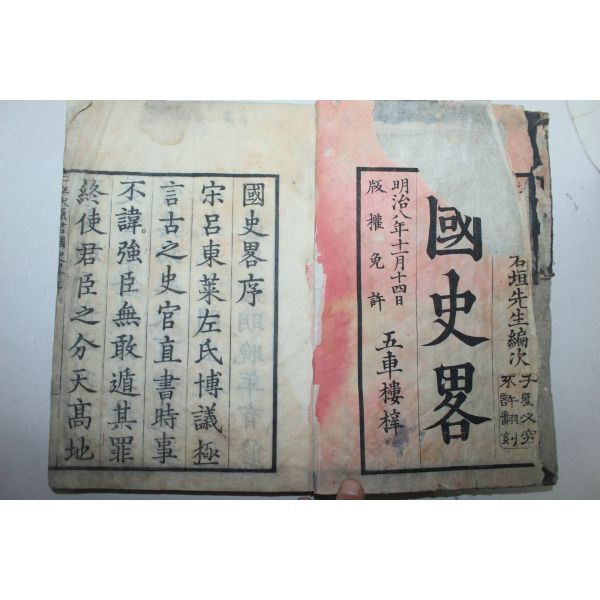 石垣先生編次
不許翻刻
千里必究
國史畧
五車樓梓
明治八年十一月十四日
版權免許
國史畧序
宋呂東萊左氏博議極
言古之史官直書時事
不諱強臣無敢遁其罪
終使君臣之分天髙地